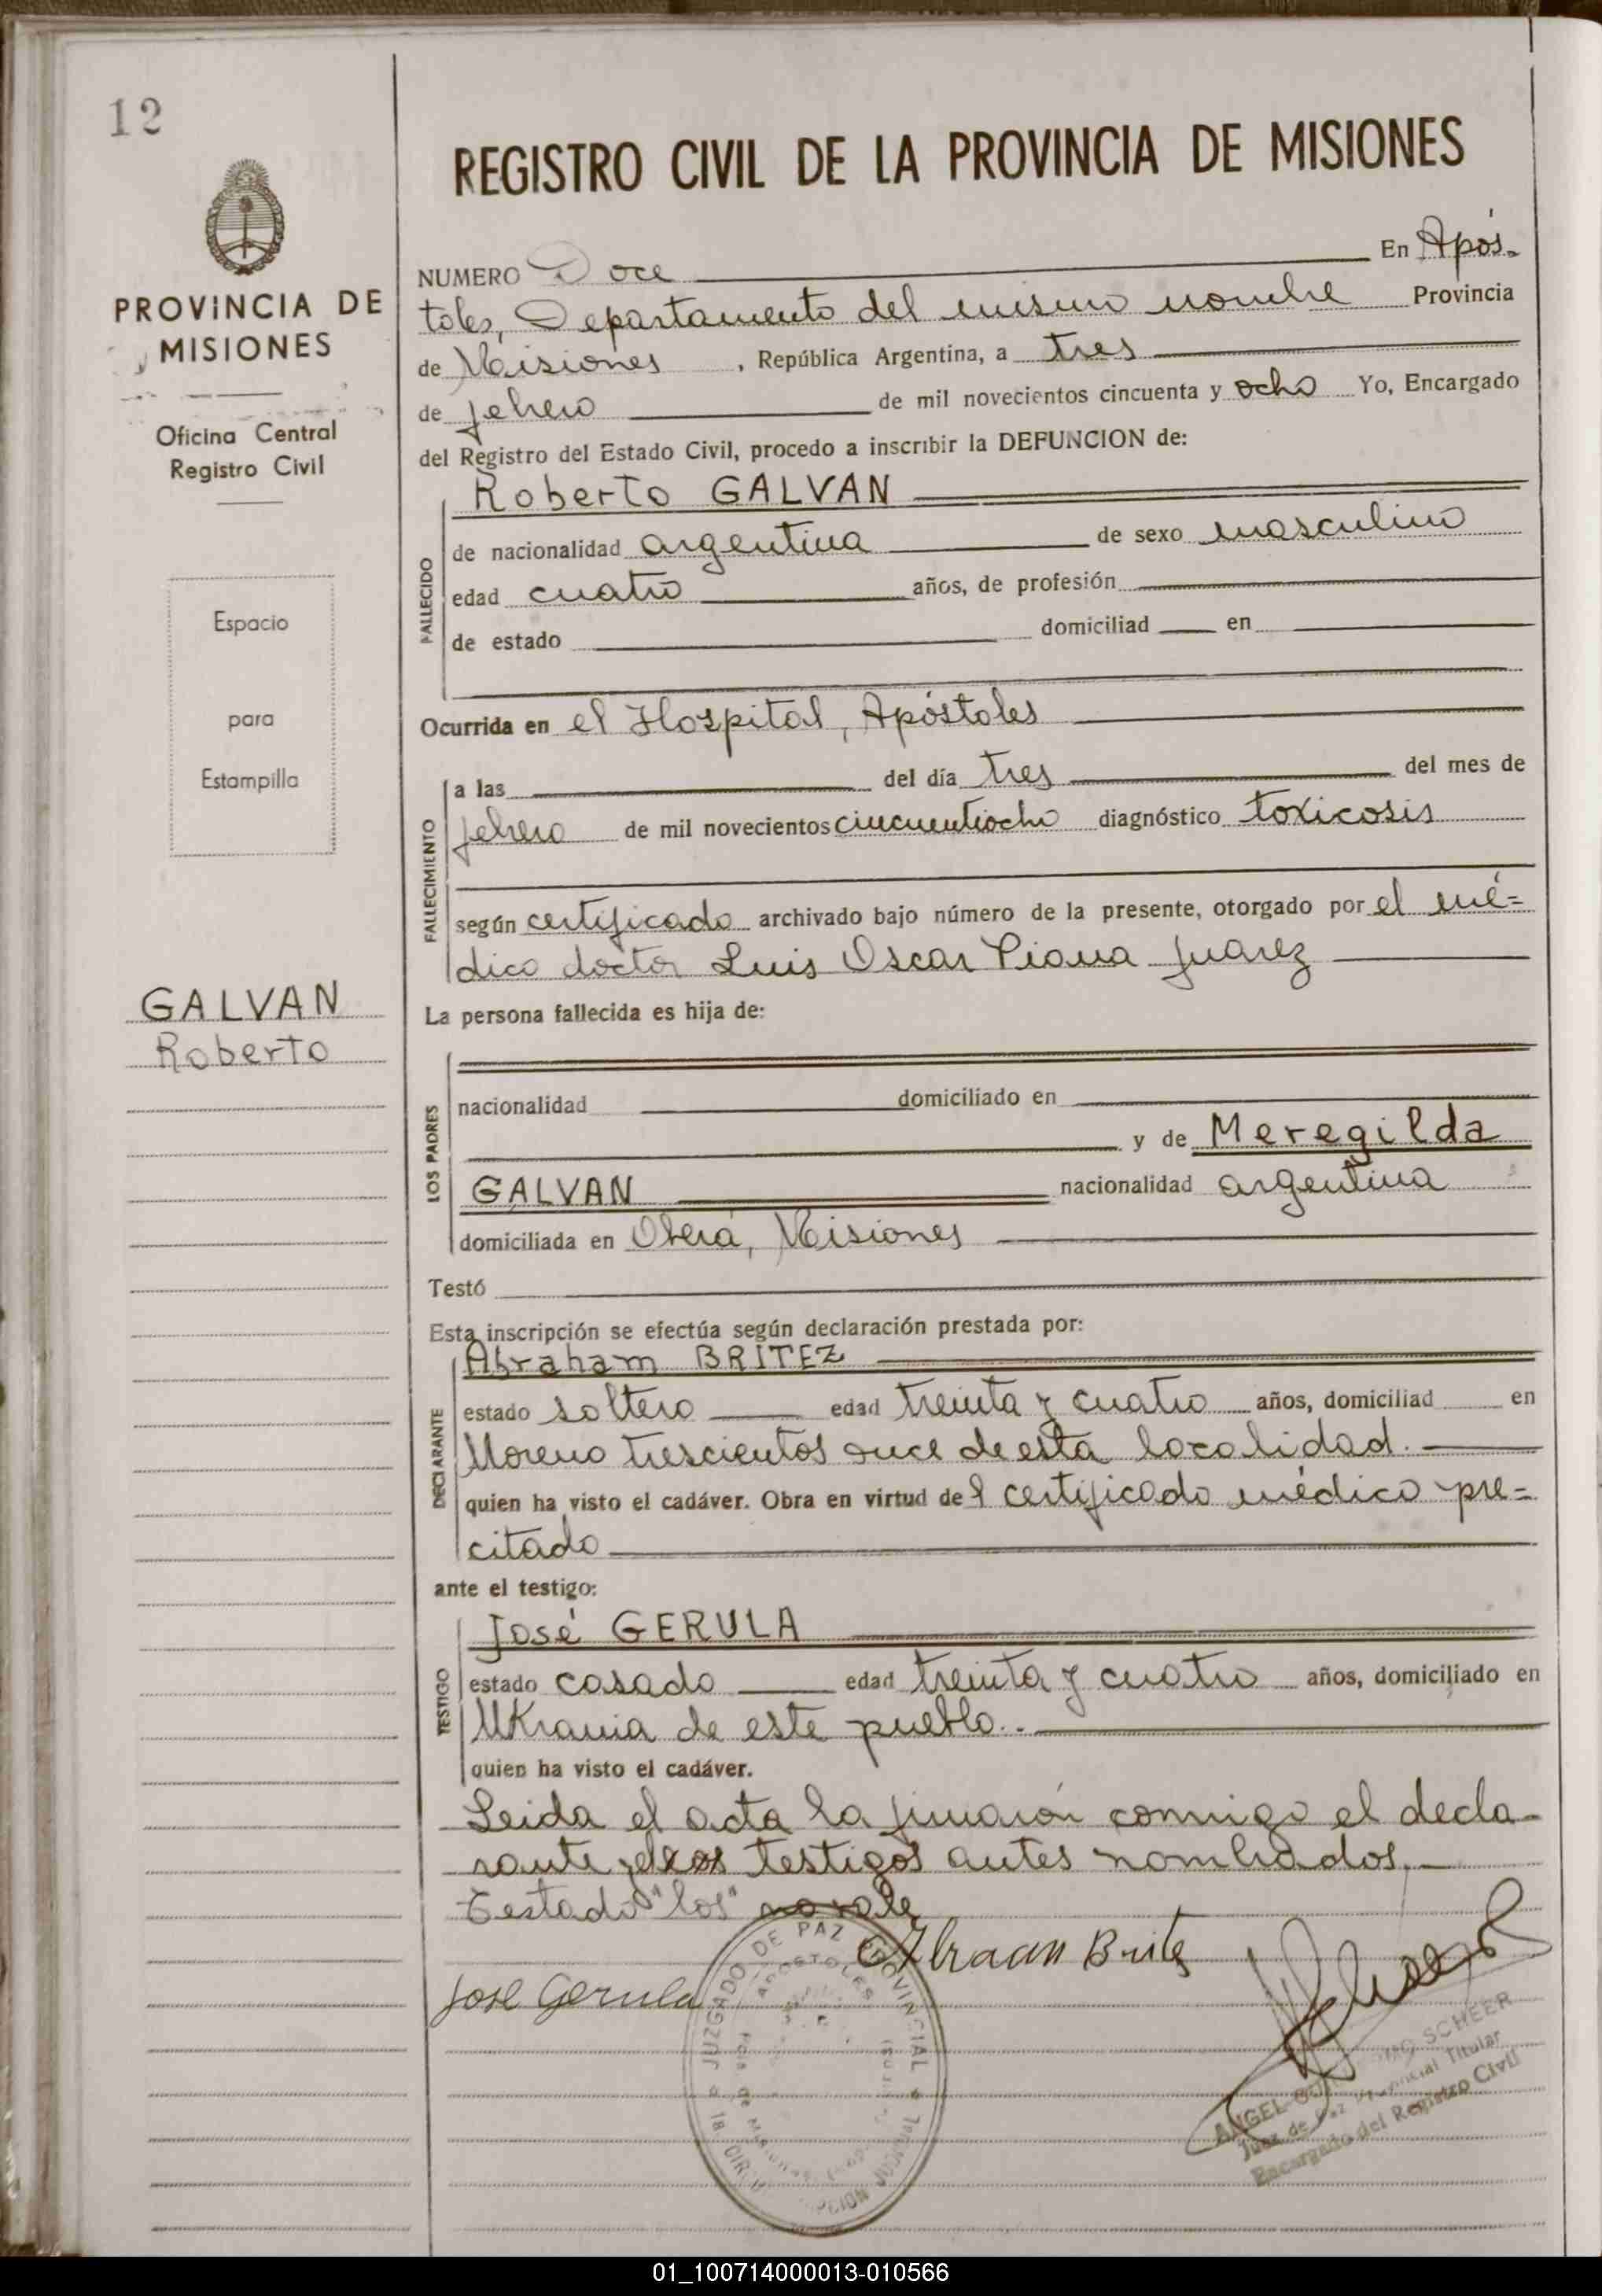 12
PROVINCIA DE
MISIONES
Oficina Central
Registro Civil
Espacio
para
Estampilla
GALVAN
Roberto
REGISTRO CIVIL DE LA PROVINCIA DE MISIONES
NUMERO Doce En Após-
toles, Departamento del mismo nombre Provincia
de Misiones , República Argentina, a tres
de febrero de mil novecientos cincuenta y ocho Yo, Encargado
del Registro del Estado Civil, procedo a inscribir la DEFUNCION de:
FALLECIDO
Roberto GALVAN
de nacionalidad argentina de sexo masculino
edad cuatro años, de profesión
de estado domiciliad en
Ocurrida en el Hospital, Apóstoles
FALLECIMIENTO
a las del día tres del mes de
febrero de mil novecientos cincuentiocho diagnóstico toxicosis
según certificado archivado bajo número de la presente, otorgado por el mé=
dico doctor Luis Oscar Piana Juarez
La persona fallecida es hija de:
LOS PADRES
nacionalidad domiciliado en
y de Meregilda
GALVAN nacionalidad argentina
domiciliada en Oberá, Misiones
Testó
Esta inscripción se efectúa según declaración prestada por:
DECLARANTE
Abraham BRITEZ
estado soltero edad treinta y cuatro años, domiciliad en
Moreno trescientos once de esta localidad.
quien ha visto el cadáver. Obra en virtud del certificado médico pre=
citado
ante el testigo:
TESTIGO
José GERULA
estado casado edad treinta y cuatro años, domiciliado en
UKrania de este pueblo.
quien ha visto el cadáver.
Leida el acta la firmaron conmigo el decla-
rante y los testigos antes nombrados.
Testado "los" no vale
Abraan Britez
Jose Gerula
JUZGADO DE PAZ PROVINCIAL
APOSTOLES
ANGEL SCHEER
Juez de Paz Provincial Titular
Encargado del Registro Civil
01_100714000013-010566